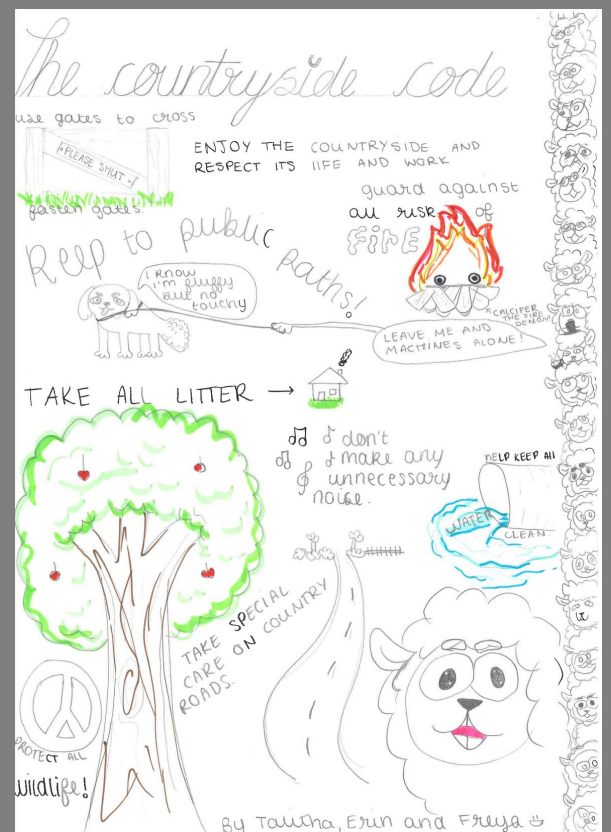 The countryside code
use gates to cross
PLEASE SHUT
fasten gates.
ENJOY THE COUNTRYSIDE AND
RESPECT ITS lIFE AND WORK
guard against
all risk of
FiRE
Keep to public paths!
I know
i'm fluffy
but no
touchy
CALCIFER
THE FIRE
DEMON!
LEAVE ME AND
MACHINES ALONE!
TAKE ALL LITTER →
don't
make any
unnecessary
noise.
HELP KEEP All
WATER
CLEAN.
TAKE SPECIAL
CARE ON COUNTRY
ROADS.
PROTECT ALL
wildlife!
By Tawha, Erin and Freya